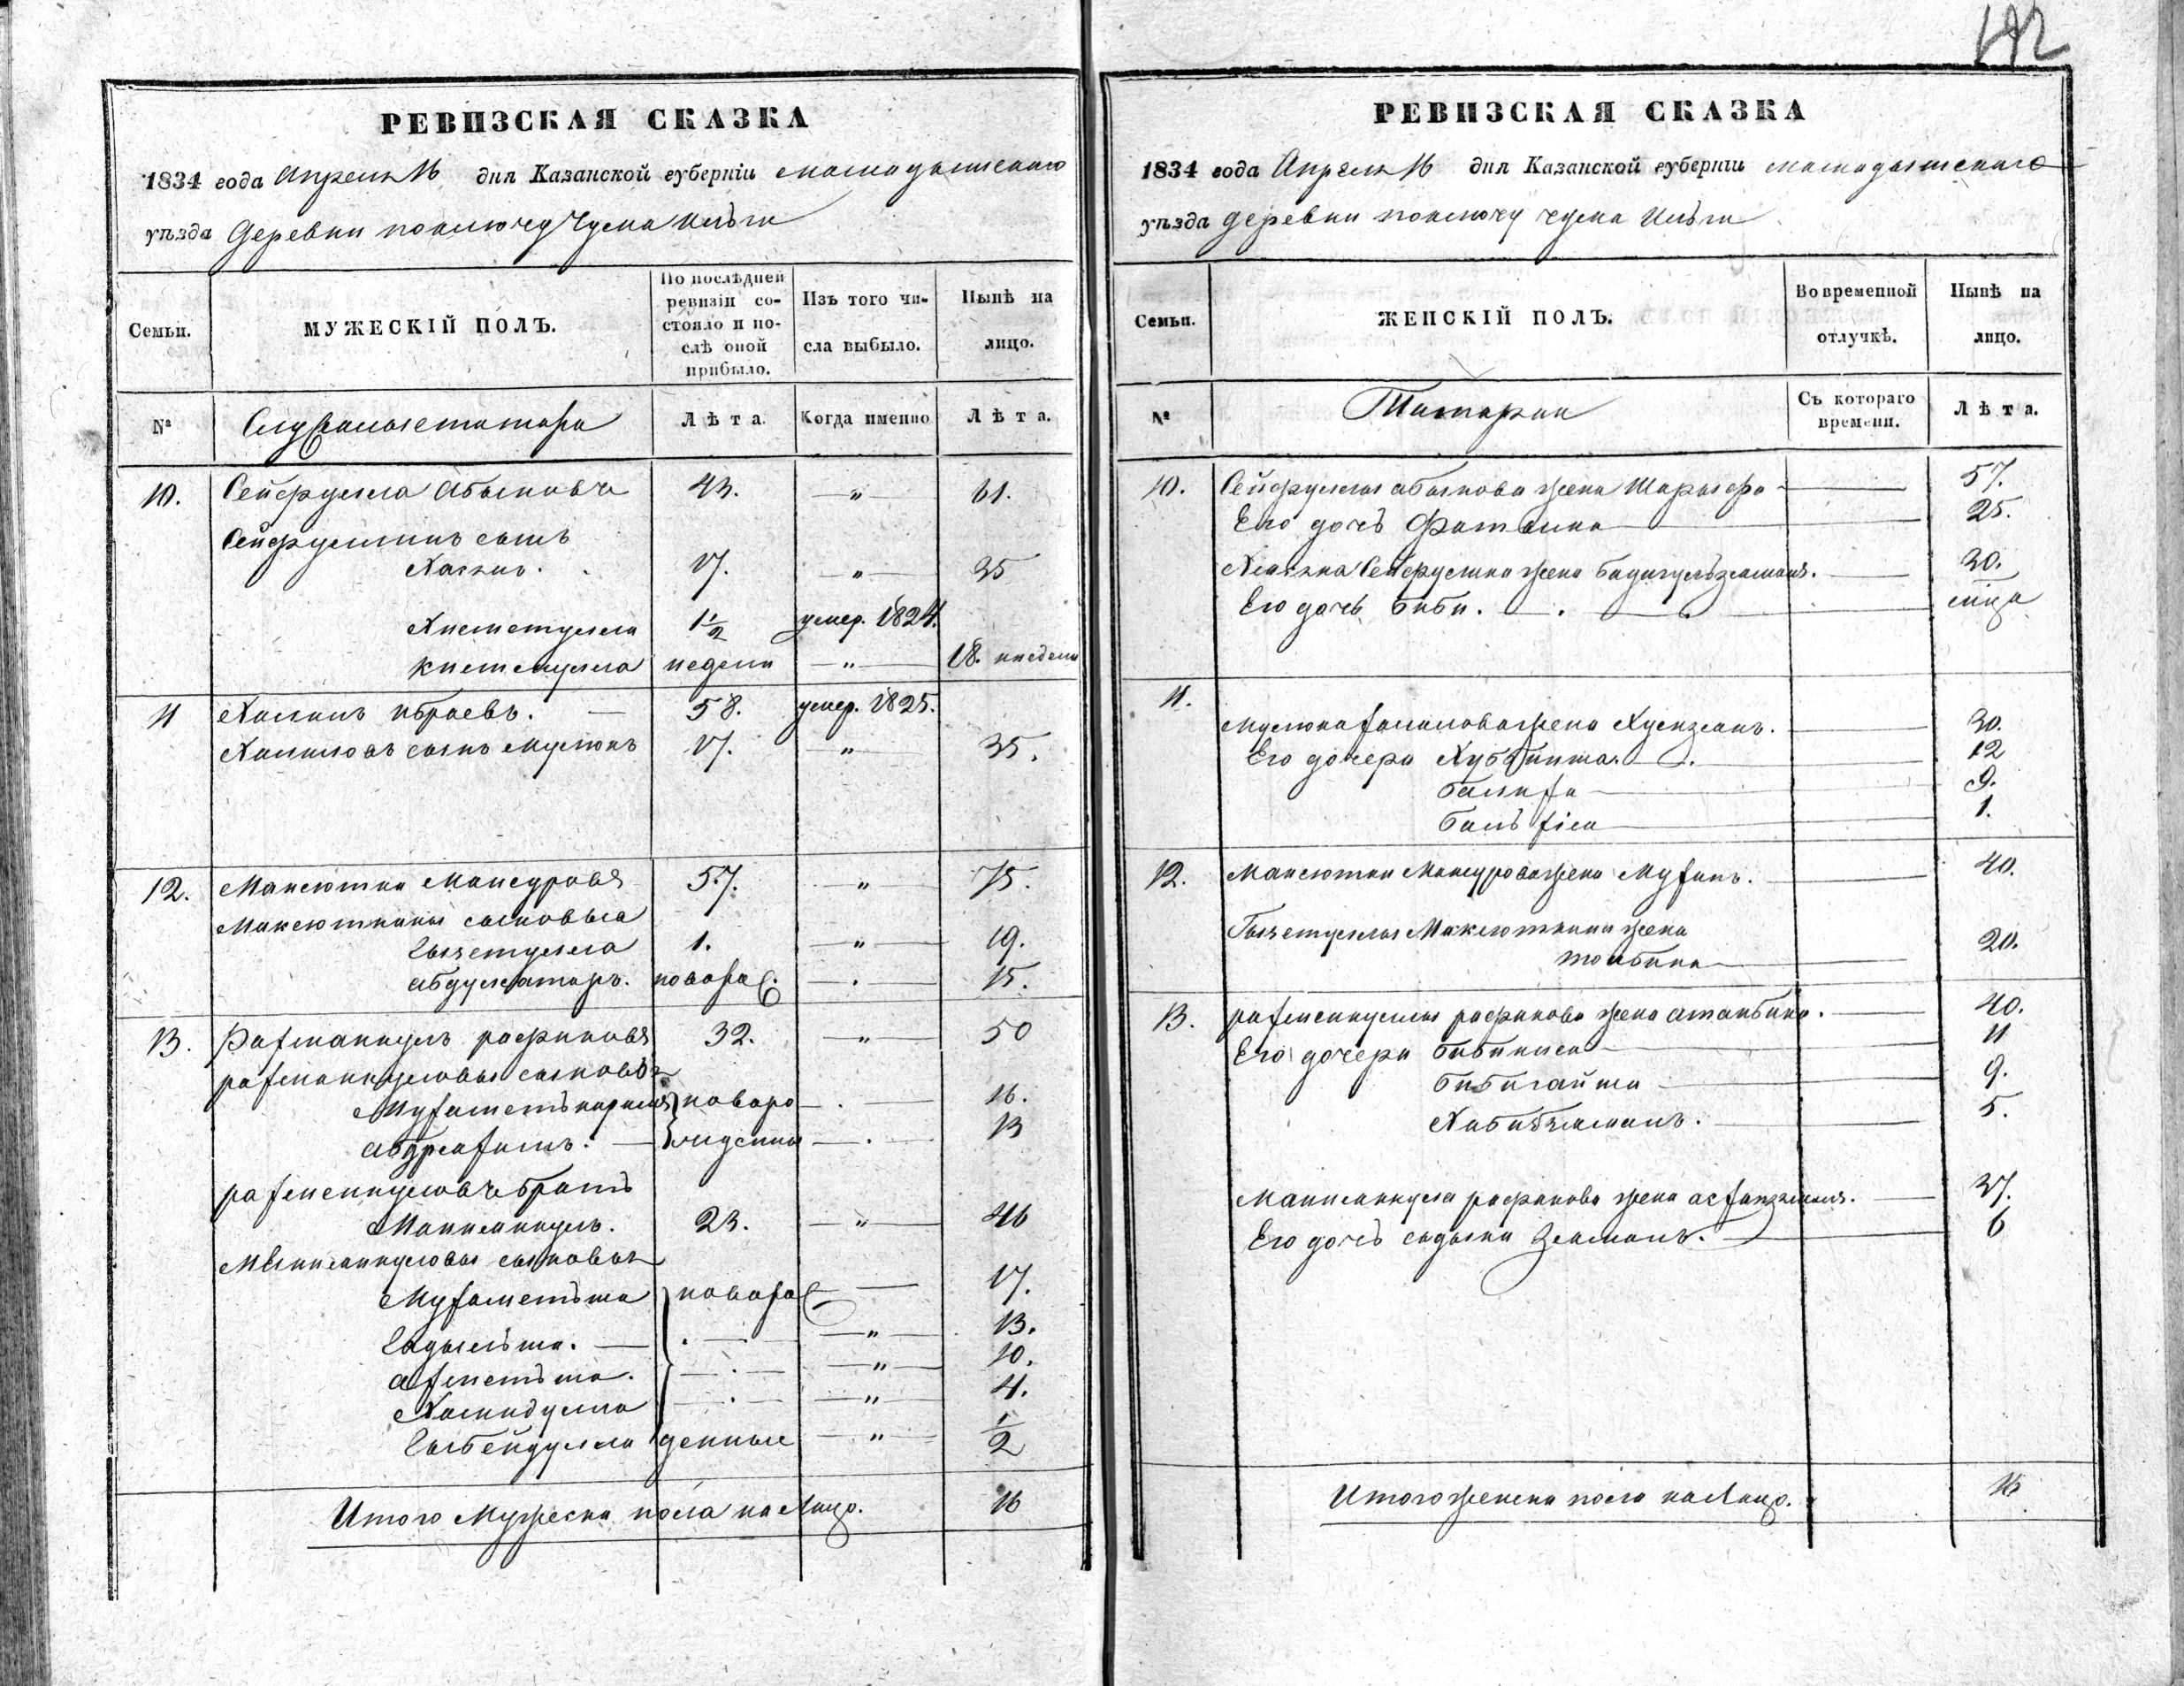 192
РЕВИЗСКАЯ СКАЗКА
1834 года Апреля 16 дня Казанской губерніи мамадышскаго
уѣзда Деревни поключу Чума Илъги
Семьи.
МУЖЕСКІЙ ПОЛЪ.
По послѣдней ревизіи состояло и послѣ оной прибыло.
Изъ того числа выбыло.
Нынѣ на лицо.
№ Служилыетатара Лѣта. Когда именно Лѣта.
10. Сейфулла Абызовъ 43. — " — 61.
Сейфуллинъ сынъ
17. — " — 35
Хисметулла 1 1/2 умер. 1824.
недели — " — 18. инедели
11 Халилъ ибраевъ. — 58. умер. 1825.
Халиловъ сынъ Муслюмъ 17. " 35.
12. Максютка Мансуровъ 57. — " — 75.
Максюткины сыновья
Гызетулла 1. — " — 19.
абдулсатаръ. поворо — . — 15.
13. Рахманкулъ рафиковъ 32. — " — 50
рахманкуловы сыновья
Мухаметькаримъ новоро — . — 16.
— жиденны — . — 13
рахманкуловъ братъ
Манманкулъ. 23. — " — 46
Манманкуловы сыновья
Мухаметъша новоро — 17.
Гадылъша. — . — — " — 13.
ахметъша. — . — — " — 10.
Хамидулла — . — — " — 4.
Гыбейдулла денные — " — 1/2
Итого Мужеска пола на Лицо. 16
РЕВИЗСКАЯ СКАЗКА
1834 года Апреля 16 дня Казанской губерніи мамадышскаго
уѣзда деревни поключу чума Илъги
Семьи.
ЖЕНСКІЙ ПОЛЪ.
Во временной отлучкѣ.
Нынѣ на лицо.
№ Татарки Съ котораго времени. Лѣта.
10. Сейфуллы абызова жена Шарыфа — 57.
Его дочь Фатыма — 25.
Сейфуллина жена бадигулъзямалъ. — 30.
Его дочь биби. — . — мца
11.
Муслюма халилова жена Хуснзямалъ. — 30.
Его дочери — 12
— 9.
— 1.
12. Максютки Мансурова жена — 40.
Гызетуллы Максюткина жена
— 20.
13. рахманкулы рафикова жена атанбика. — 40.
Его дочери бибиниса — 11
бибигайша — 9.
Хабибзямалъ. — 5.
Манманкула рафикова жена — 37.
Его дочь садыка Зямалъ. — 6
Итого женска пола на Лицо. 16